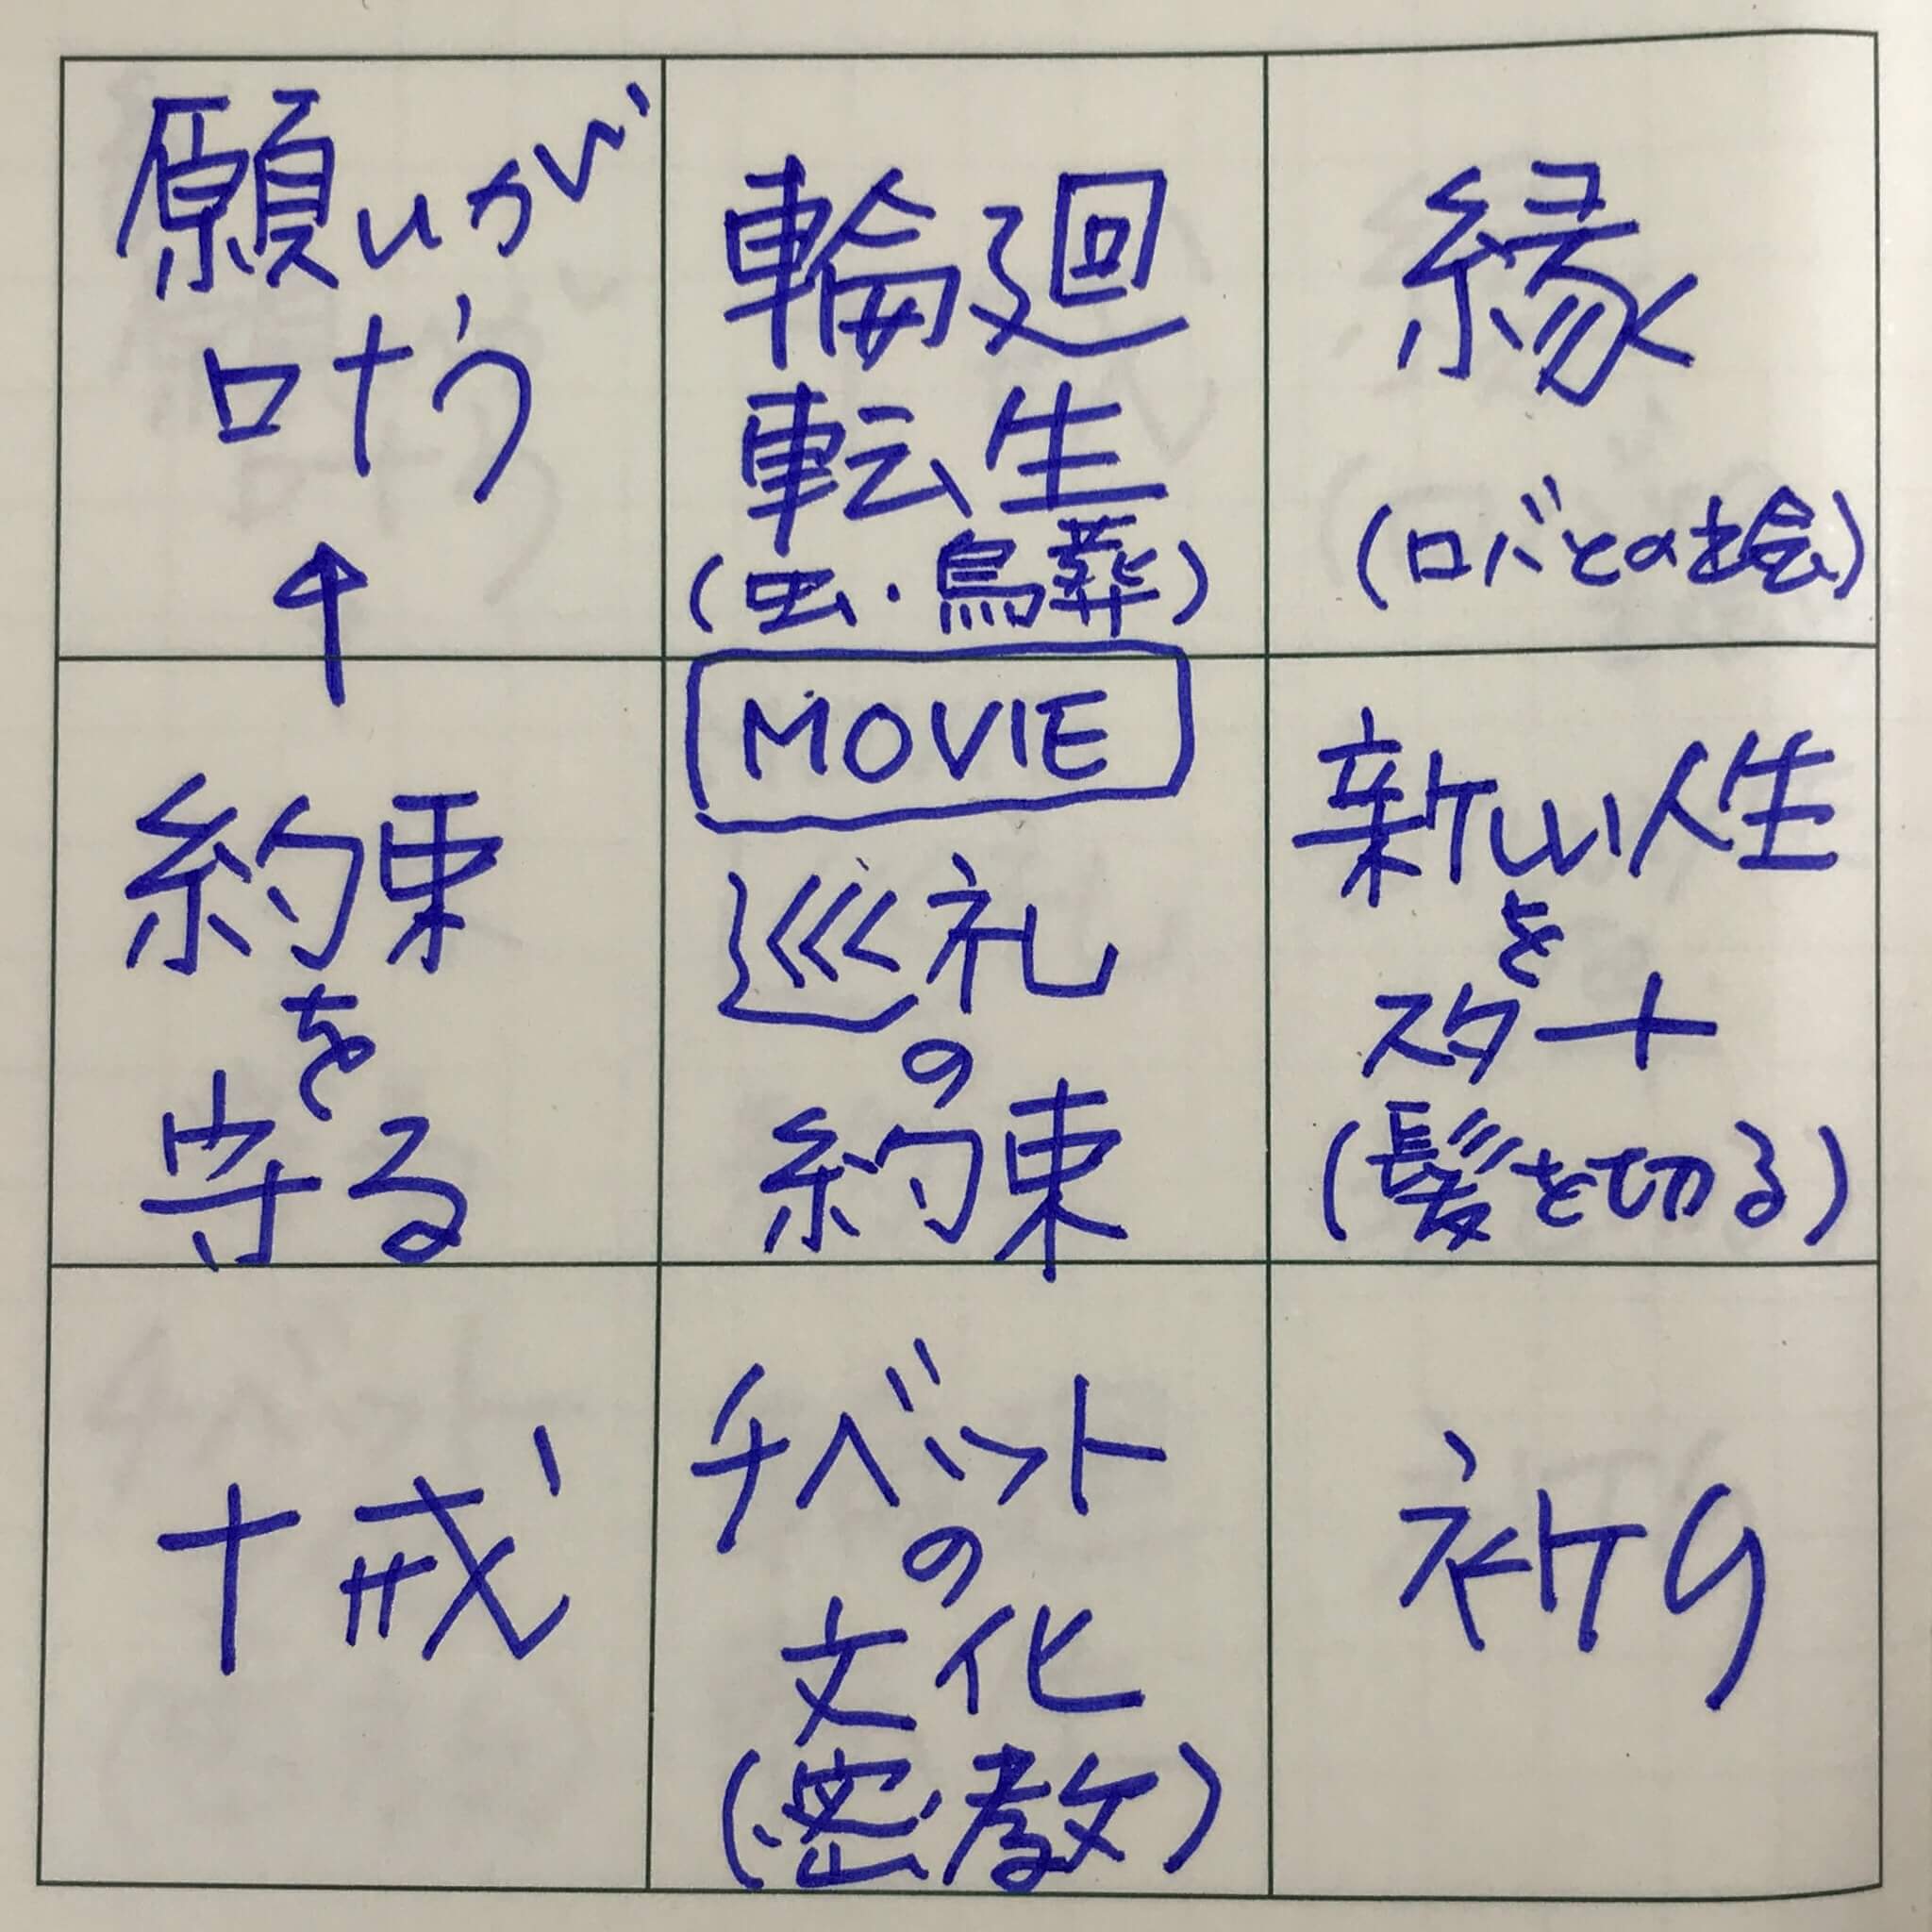 願いが
叶う
↑
輪廻
転生
(虫・鳥葬)
縁
(ロバとの出会)
約束
を
守る
MOVIE
巡礼
の
約束
新しい人生
を
スタート
(髪を切る)
十戒
チベット
の
文化
(密教)
祈り